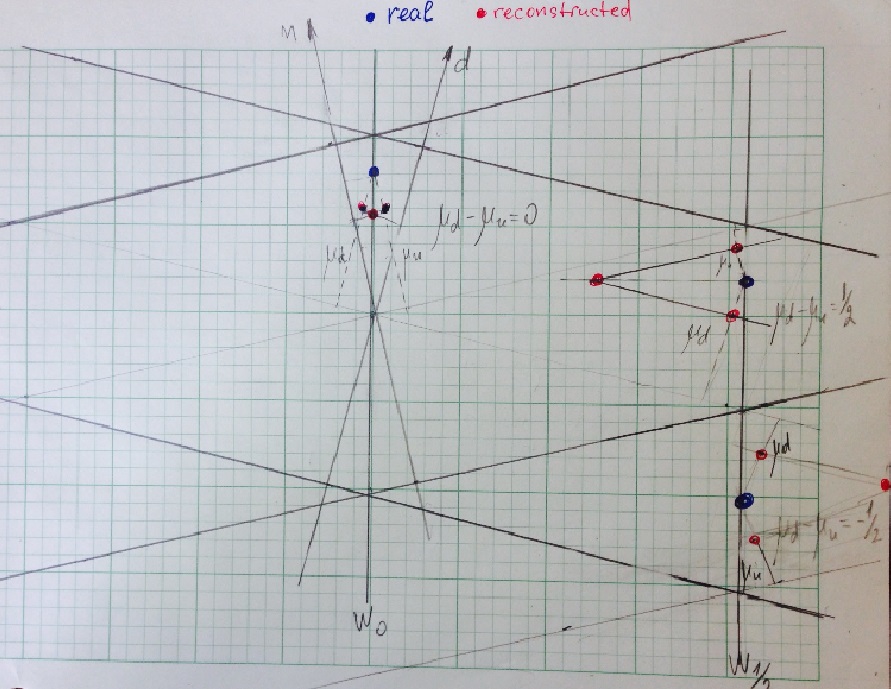 • real • reconstructed
M
d
μd - μu = 0
μd μu
μd - μu = 1/2
μd
μd
μd - μu = -1/2
μu
W0
W1/2